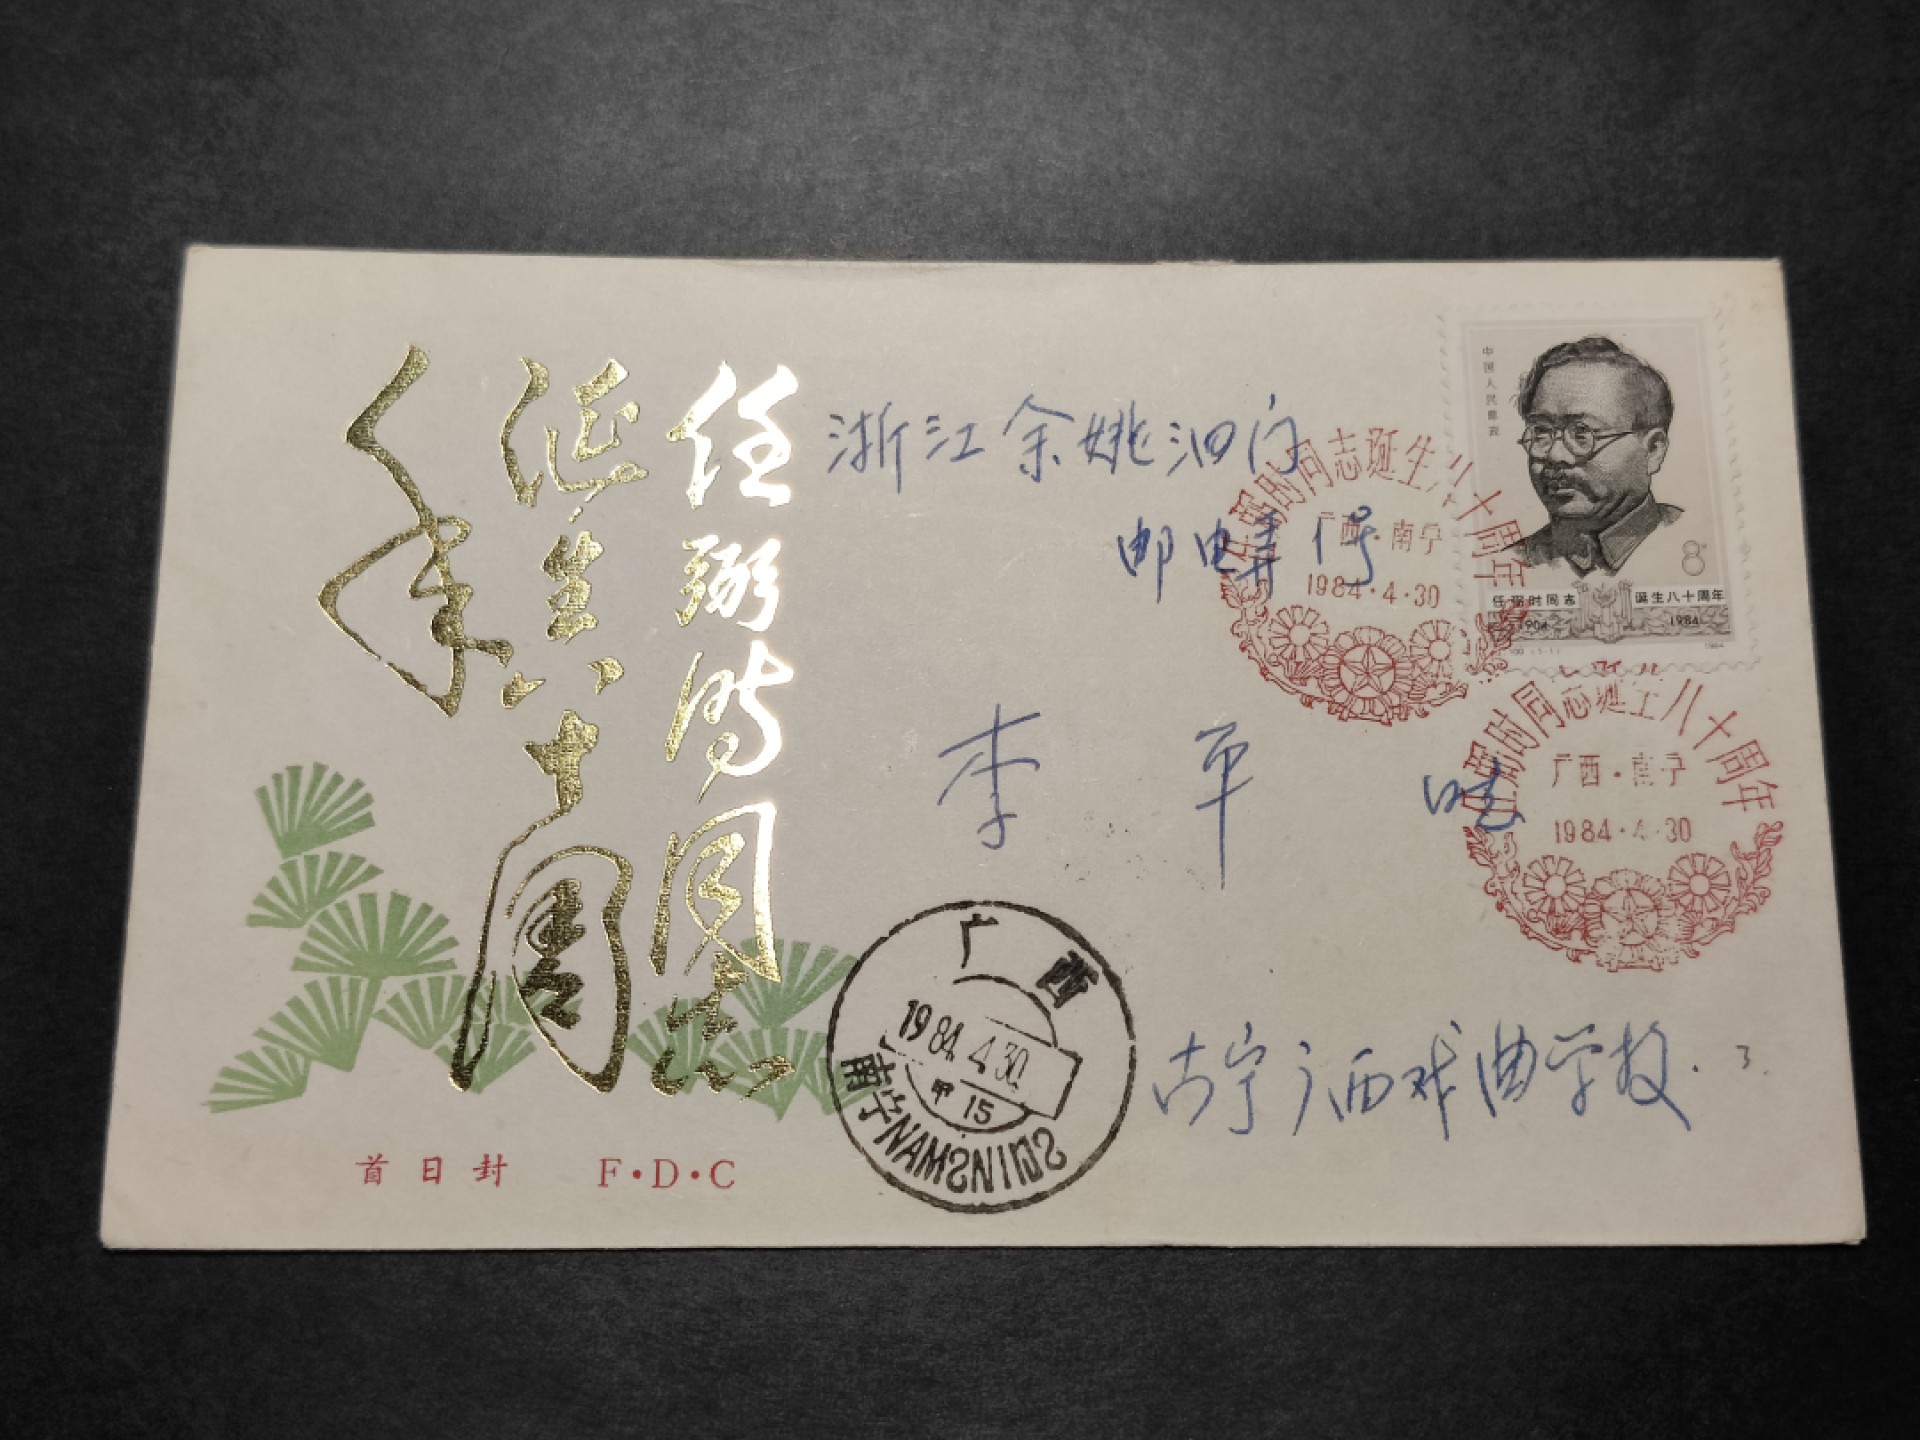 任弼时同志
诞生八十周
年
首日封 F·D·C
浙江余姚泗门
邮电
李平
南宁广西戏曲学校
中国人民邮政
8
任弼时同志 诞生八十周年
1904 1984
1984
任弼时同志诞生八十周年
广西·南宁
1984·4·30
任弼时同志诞生八十周年
广西·南宁
1984·4·30
广西
1984.4.30
甲15
南宁NAMƧNIŊƧ